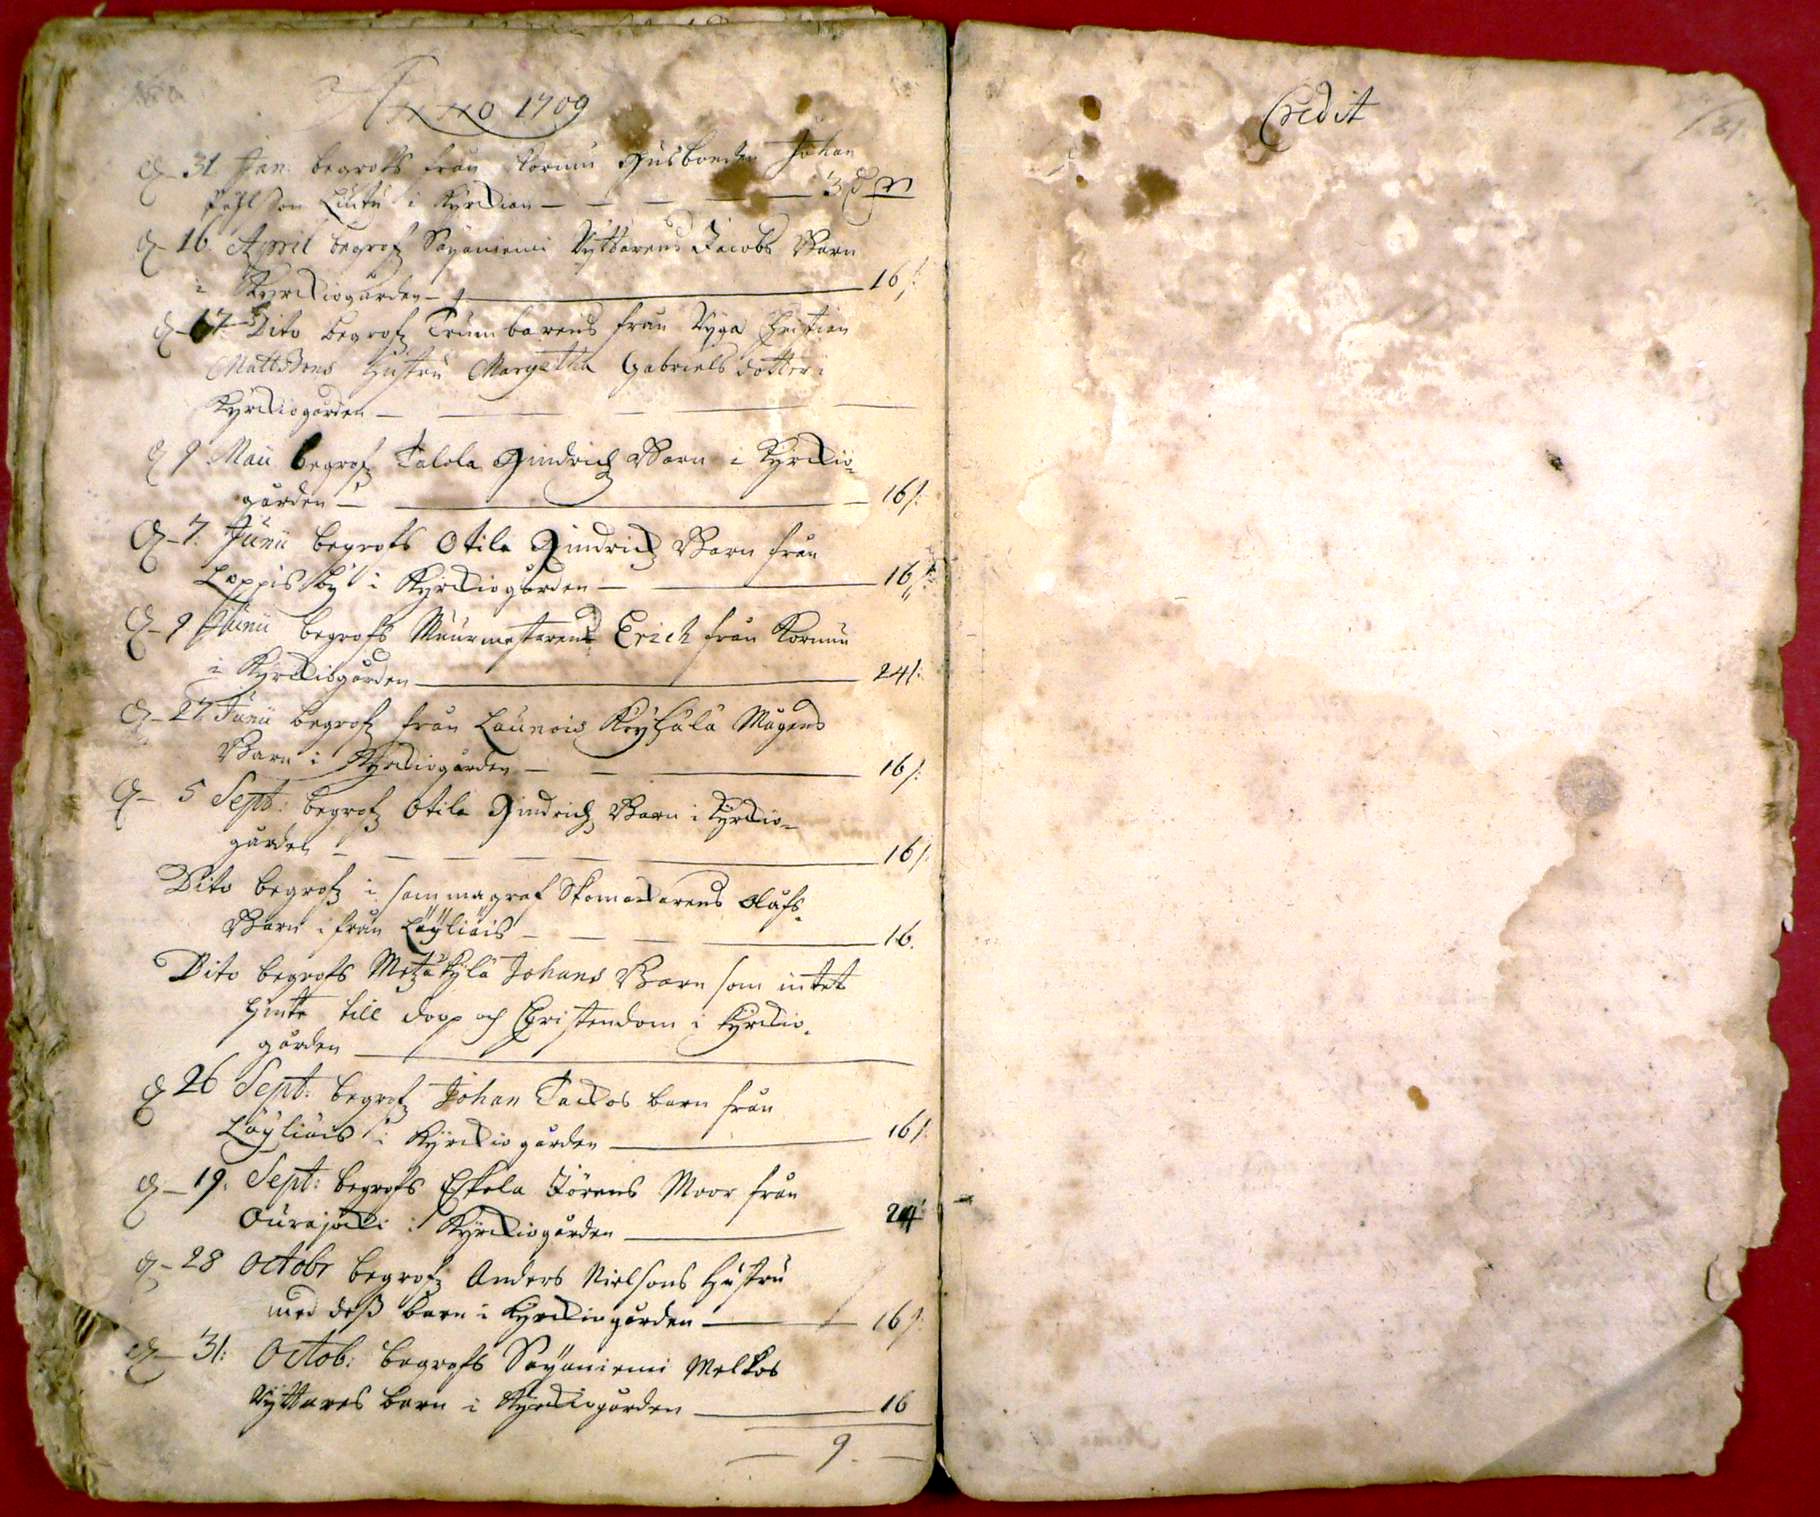 Anno 1709
31 Jan: begrofs från Kormu Husbonden Johan
Pohlson Luttu i Kyrckian — 3 d m
16 April begrofz Sayaniemi Ryttarens Jacobs Barn
i Kyrckiogården — 16/:
17 Dito begrofz Trumbarens från Ryga Christian
Mattssons Hustru Margetha Gabriels dotter i
Kyrckiogården —
9 Maii begrofz Talola Hindrich Barn i Kyrckio-
gården — 16/:
7: Junii begrofs Otila Hindrich Barn från
Loppis by i Kyrckiogården — 16/:
9 Junii begrofs Muurmestarens Erich från Kormu
i Kyrckiogården — 24/:
27 Junii begrofz från Launois Köykälä Mågens
Barn i Kyrckiogården — 16/:
5 Sept: begrofz Otila Hindrich Barn i Kyrckio-
gården — 16/:
Dito begrofz i samma graf Skomackarens Olafs
Barn ifrån Läyliäis — 16.
Dito begrofs Metzäkylä Johans Barn som intet
hinte till doop och Christendom i Kyrckio-
gården —
26 Sept: begrofz Johan Tackos barn från
Läyliäis i Kyrckiogården — 16/:
19: Sept: begrofs Eskola Jörens Moor från
Ourajocki i Kyrckiogården — 24
28 Octobr begrofz Anders Nielsons Hustru
med dess barn i Kyrckiogården — 16/:
31: Octob: begrofs Sayaniemi Melkos
Ryttares barn i Kyrckiogården — 16
— 9. —
Credit
131.